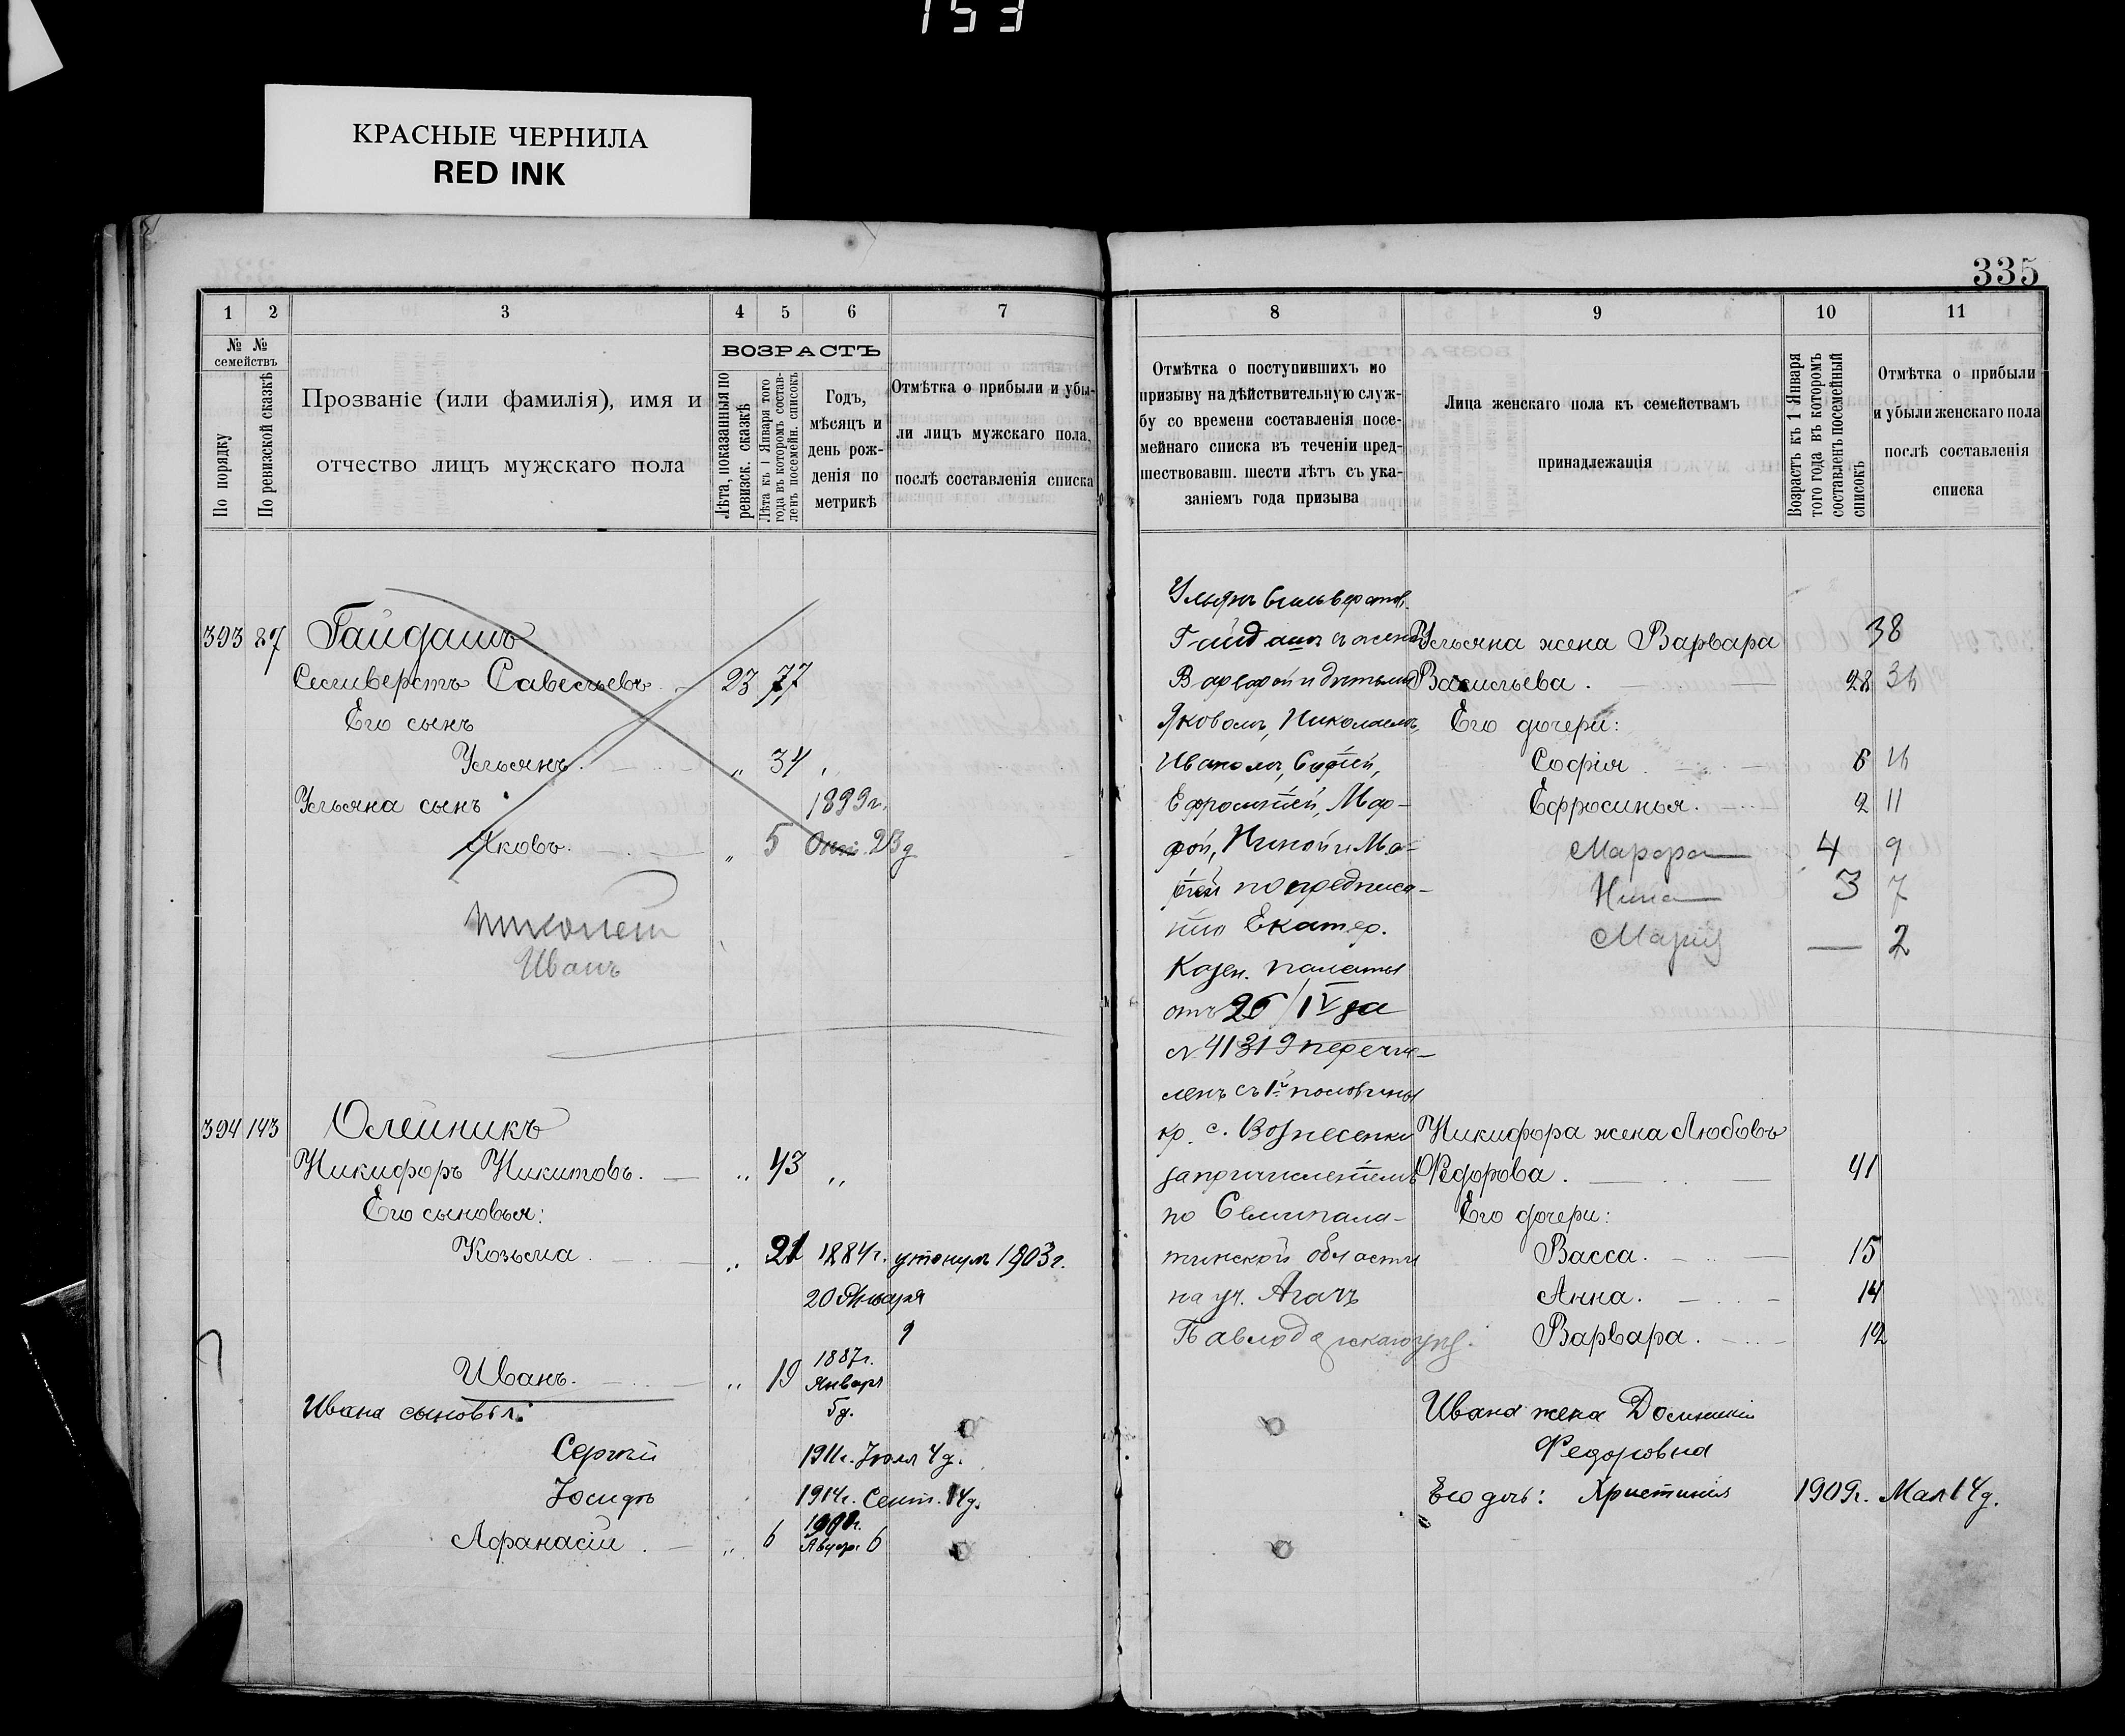 153
КРАСНЫЕ ЧЕРНИЛА
RED INK
335
1 2 3 4 5 6 7
№ №
семействъ
По порядку
По ревизской сказкѣ
Прозваніе (или фамилія), имя и
отчество лицъ мужскаго пола
ВОЗРАСТЪ
Лѣта, показанныя по
ревизск. сказкѣ
Лѣта къ 1 Января того
года въ которомъ состав-
ленъ посемейн. списокъ
Годъ,
мѣсяцъ и
день рож-
денія по
метрикѣ
Отмѣтка о прибыли и убы-
ли лицъ мужскаго пола,
послѣ составленія списка
393 87 Гайдашъ
Селиверстъ Савельевъ 23 77
Его сынъ
Ульянъ. „ 34
Ульяна сынъ 1899г.
Яковъ. „ 5 Окт. 23 д
Николай
Иванъ
394 143 Олейникъ
Никифоръ Никитовъ. „ 43 „
Его сыновья:
Козьма „ 21 1884г. утонулъ 1903г.
20 Января
Иванъ. „ 19 1887г.
Января
5д.
Ивана сыновья:
Сергѣй 1911г. Іюля 4д.
Іосифъ 1914г. Сент. 14д.
Афанасій „ 6
Август. 6
8 9 10 11
Отмѣтка о поступившихъ по
призыву на дѣйствительную служ-
бу со времени составленія посе-
мейнаго списка въ теченіи пред-
шествовавш. шести лѣтъ съ ука-
заніемъ года призыва
Лица женскаго пола къ семействамъ
принадлежащія
Возрастъ къ 1 Января
того года въ которомъ
составленъ посемейный
списокъ
Отмѣтка о прибыли
и убыли женскаго пола
послѣ составленія
списка
Гайдашъ съ женой
Варварой и дѣтьми
Яковомъ, Николаемъ,
Иваномъ, Софіей,
Ефросиніей, Мар-
фой, Ниной и Ма-
ріей по предписа-
нію Екатер.
Казен. палаты
отъ 26/IV за
№ 41319 перечис-
ленъ съ 1й половины
кр. с. Вознесенки
за причисленіемъ
по Семипала-
тинской области
на уч. Агачъ
Павлодарскаго уѣз.
Ульяна жена Варвара 38
Васильева. 28 36
Его дочери:
Софія 8 16
Ефросинья. 2 11
Марфа 4 9
Нина 3 7
Марія — 2
Никифора жена Любовь
Федорова. 41
Его дочери:
Васса. 15
Анна. 14
Варвара. 12
Ивана жена Домникія
Федоровна
Его дочь: Христинія 1909г. Мая 14д.